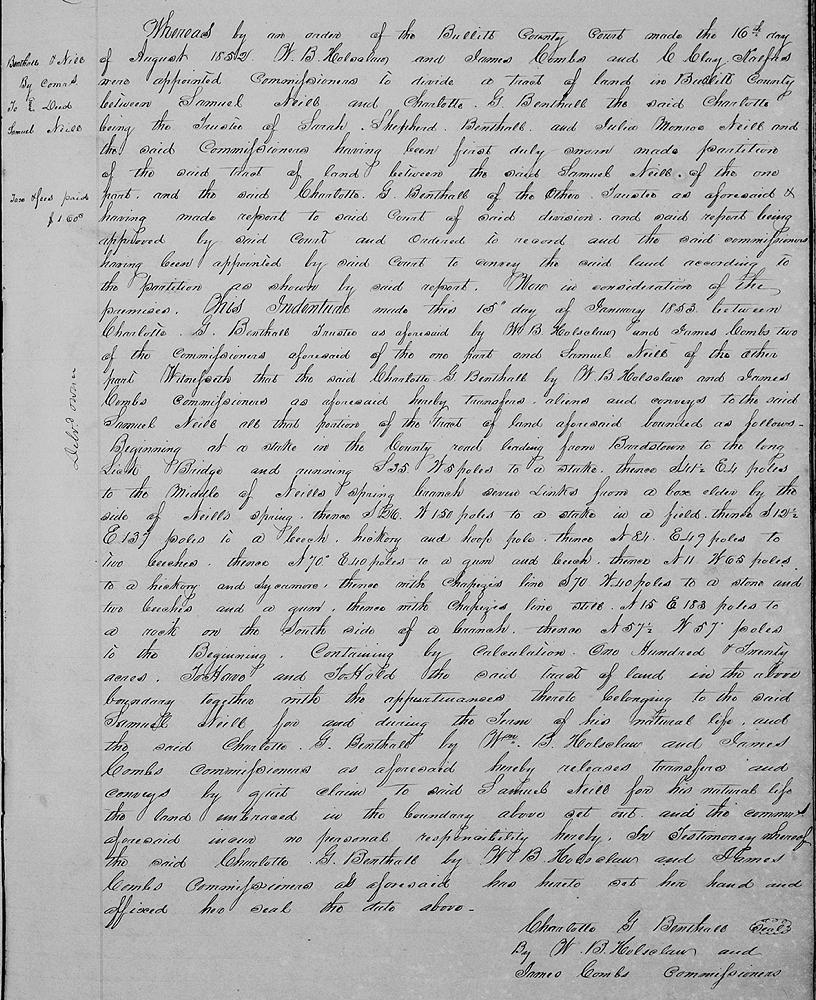 Whereas by an order of the Bullitt County Court made the 16th day
Benthall & Neill
of August 1852. W. B. Holsclaw and James Combs and C Clay
By Comrs
were appointed Commissioners to divide a tract of land in Bullitt County
To Deed
between Samuel Neill and Charlotte. G. Benthall the said Charlotte
Samuel Neill
being the Trustee of Sarah. Shepherd. Benthall. and Julia Monroe Neill and
the said Commissioners having been first duly sworn made partition
of the said tract of land between the said Samuel Neill. of the one
Tax & fees paid
part. and the said Charlotte. G. Benthall of the Other. Trustee as aforesaid &
$1 60
having made report to said Court of said division. and said report being
approved by said Court and Ordered to record and the said commissioners
having been appointed by said Court to convey the said land according to
the partition as shown by said report. Now in consideration of the
premises. This Indenture made this 15" day of January 1853 between
Charlotte. G. Benthall Trustee as aforesaid by W B Holsclaw and James Combs two
of the Commissioners aforesaid of the one part and Samuel Neill of the other
part Witnesseth that the said Charlotte G. Benthall by W. B Holsclaw and James
Combs Commissioners as aforesaid hereby transfers. aliens and conveys to the said
Delvd owner
Samuel Neill all that portion of the tract of land aforesaid bounded as follows-
Beginning at a stake in the County road leading from Bardstown to the long
Lick Bridge and running S 35 W 5 poles to a stake. thence E 4 poles
to the Middle of Neills spring branch seven Links from a box elder by the
side of Neills spring. thence W 150 poles to a stake in a field. thence S 12½
E 137 poles to a beech. hickory and hoop pole. thence N 84. E 49 poles to
two beeches. thence N 70° E 40 poles to a gum and beech. thence N 11 W 65 poles
to a hickory and Sycamore, thence with Chapezes line S 70. W 40 poles to a stone and
two beeches and a gum. thence with Chapezes line still. N 15 E 183 poles to
a rock on the South side of a branch. thence N 57½ W 57 poles
to the Beginning. Containing by Calculation. One Hundred & Twenty
acres. To Have and To Hold the said tract of land in the above
boundary together with the appurtenances thereto belonging to the said
Samuel Neill for and during the Term of his natural life. and
the said Charlotte. G. Benthall by Wm. B. Holsclaw and James
Combs Commissioners as aforesaid hereby releases transfers and
conveys by quit claim to said Samuel Neill for his natural life
the land embraced in the boundary above set out. and the commrs
aforesaid incur no personal responsibility hereby. In Testimoney whereof
the said Charlotte. G. Benthall by W B Holsclaw and James
Combs Commissioners as aforesaid has hereto set her hand and
affixed her seal the date above-
Charlotte G Benthall Seal
By W. B. Holsclaw and
James Combs Commissioners